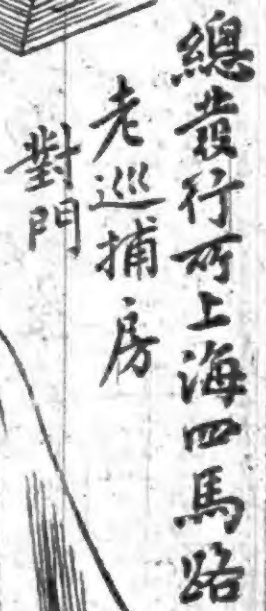 總發行所上海四馬路
老巡捕房
對門